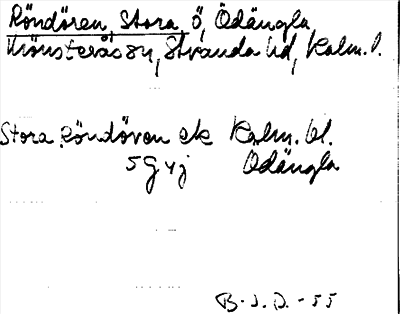 Röndören, Stora, ö, Ödängla
Mönsterås sn, Stranda hd, Kalm. l.
Stora Röndören ek Kalm. bl.
5 G 4 j Ödängla
B. J. D. - 55